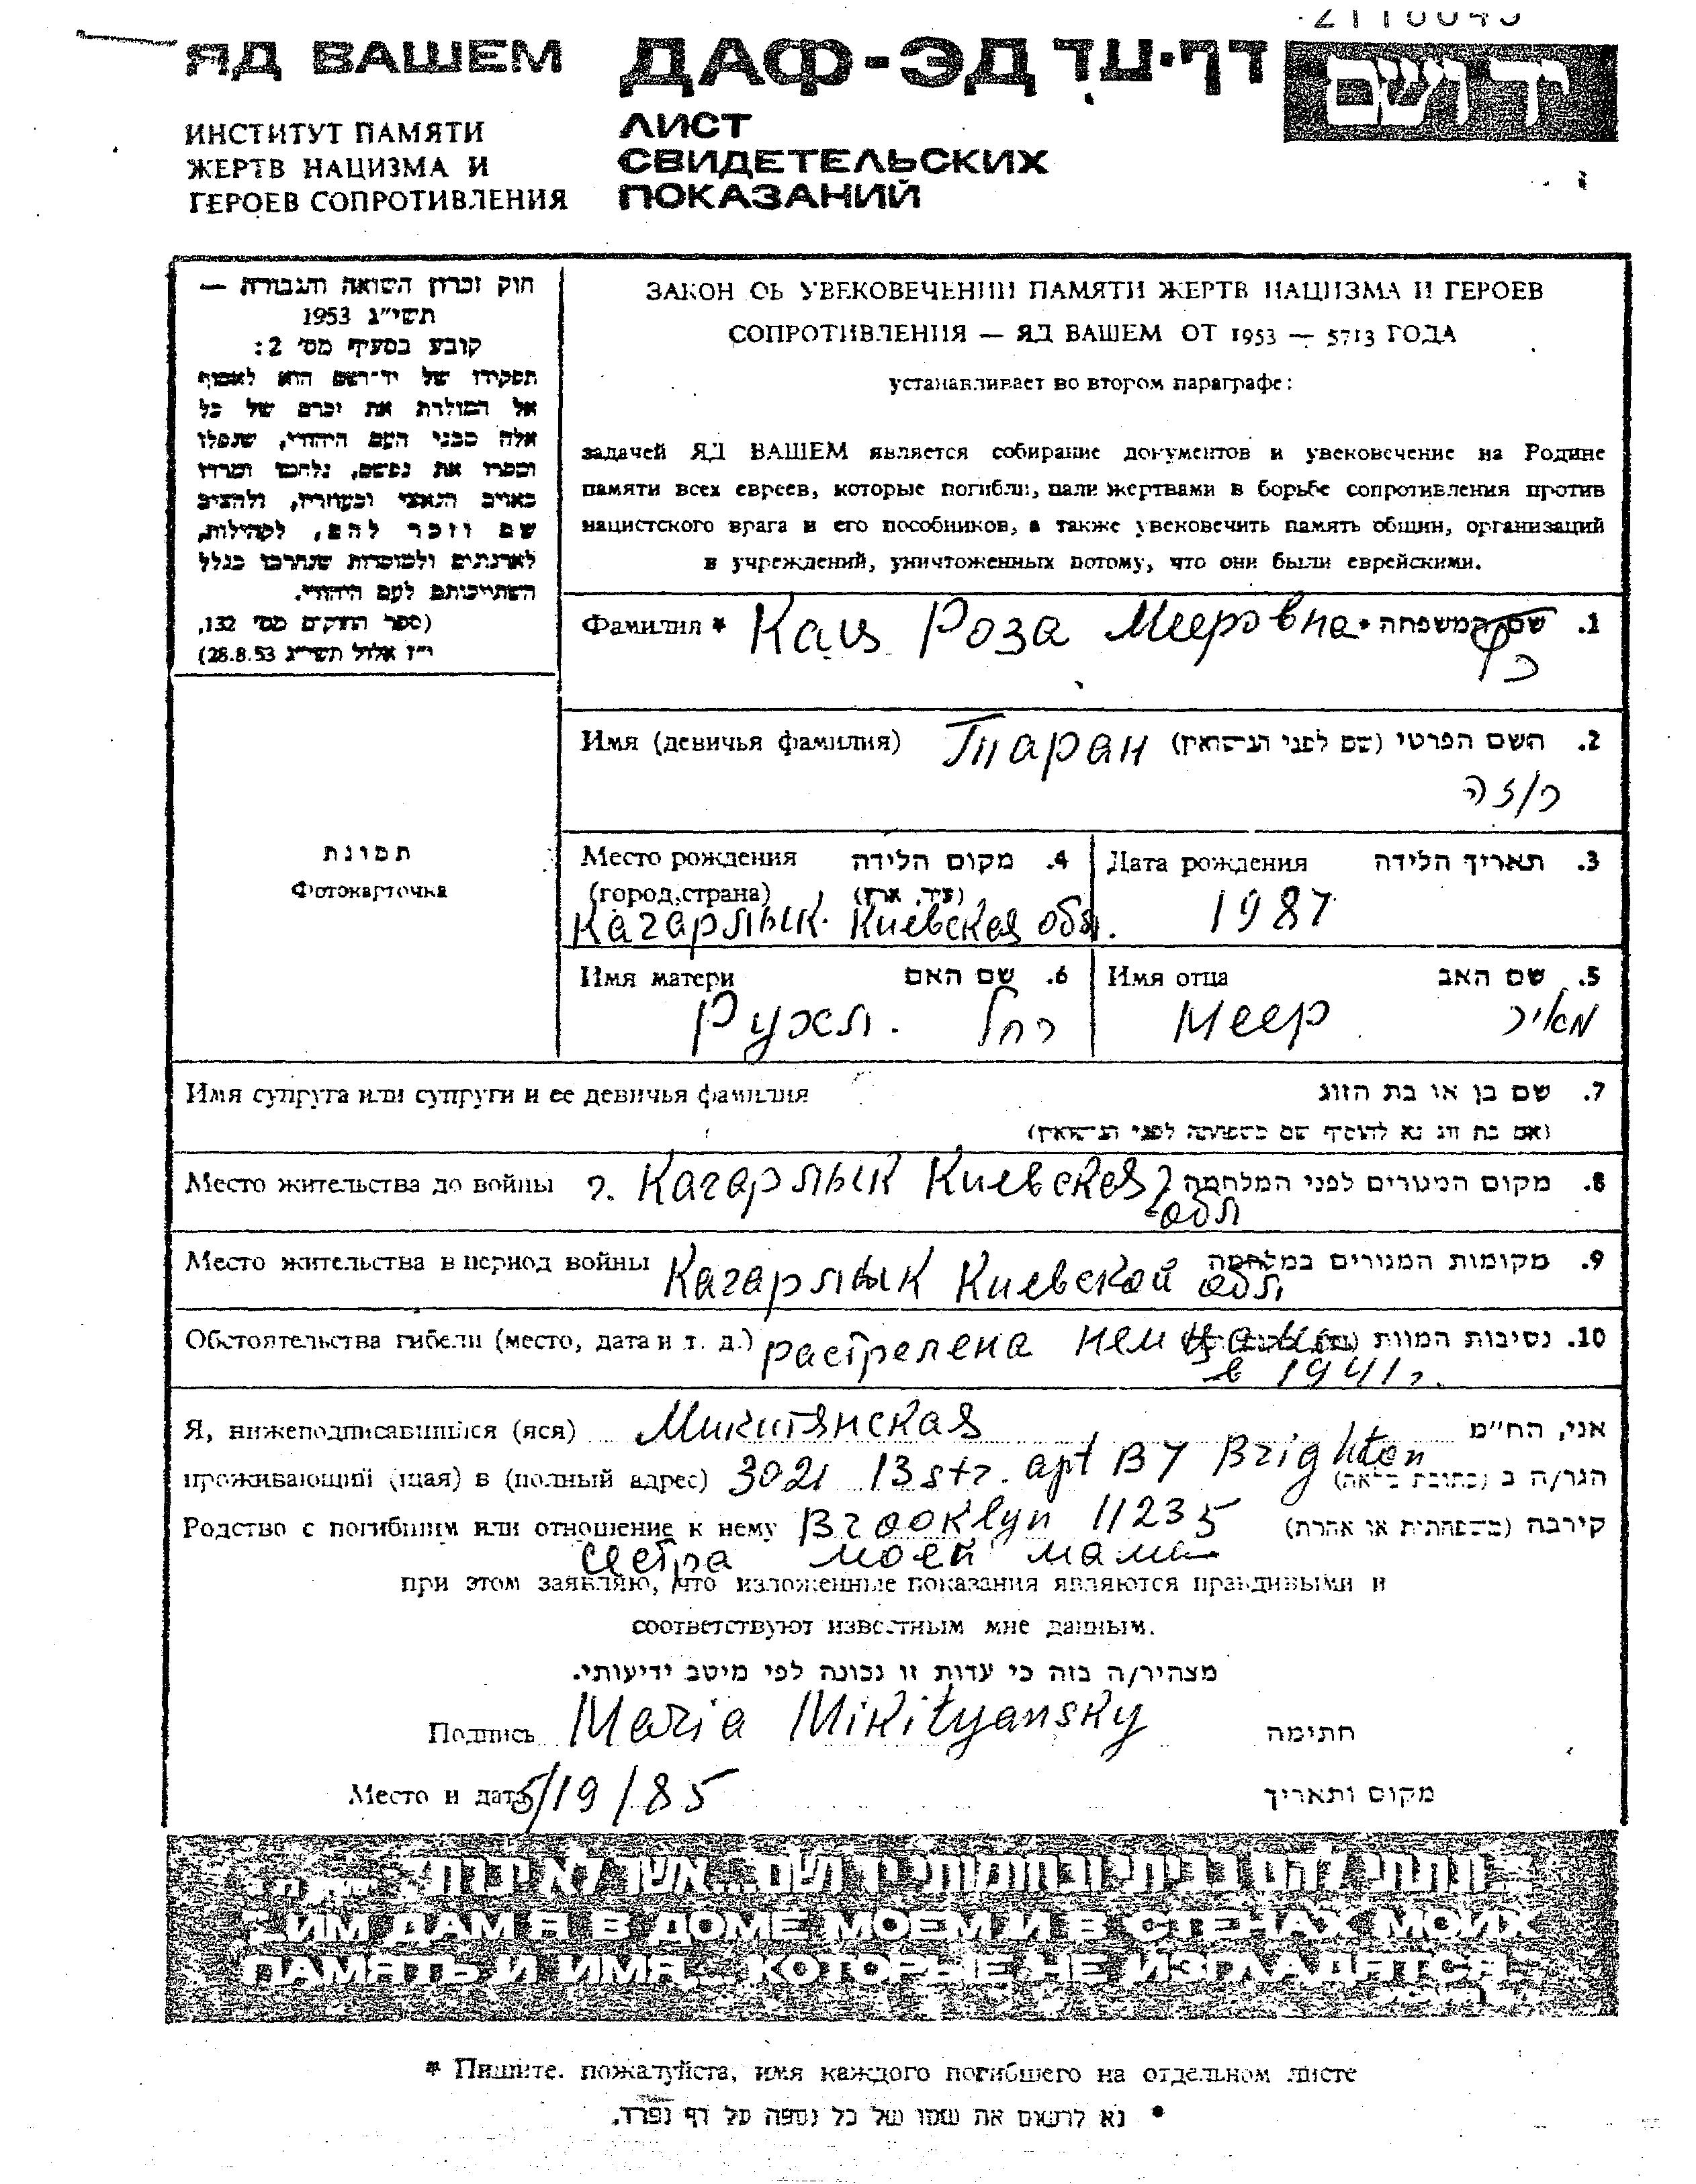 ЯД ВАШЕМ
ДАФ-ЭД דף-עד
יד ושם
ИНСТИТУТ ПАМЯТИ
ЖЕРТВ НАЦИЗМА И
ГЕРОЕВ СОПРОТИВЛЕНИЯ
ЛИСТ
СВИДЕТЕЛЬСКИХ
ПОКАЗАНИЙ
חוק זכרון השואה והגבורה —
תשי״ג 1953
קובע בסעיף מס׳ 2:
תפקידו של יד־ושם הוא לאסוף
אל המולדת את זכרם של כל
אלה מבני העם היהודי, שנפלו
ומסרו את נפשם, נלחמו ומרדו
באויב הנאצי ובעוזריו, ולהציב
שם וזכר להם, לקהילות,
לארגונים ולמוסדות שנחרבו בגלל
השתייכותם לעם היהודי.
(ספר החוקים מס׳ 132,
י״ז אלול תשי״ג 28.8.53)
ЗАКОН ОБ УВЕКОВЕЧЕНИИ ПАМЯТИ ЖЕРТВ НАЦИЗМА И ГЕРОЕВ
СОПРОТИВЛЕНИЯ — ЯД ВАШЕМ ОТ 1953 — 5713 ГОДА
устанавливает во втором параграфе:
задачей ЯД ВАШЕМ является собирание документов и увековечение на Родине
памяти всех евреев, которые погибли, пали жертвами в борьбе сопротивления против
нацистского врага и его пособников, а также увековечить память общин, организаций
и учреждений, уничтоженных потому, что они были еврейскими.
Фамилия * Кац Роза Мееровна שם המשפחה* .1
כץ
Имя (девичья фамилия) Таран השם הפרטי (שם לפני הנישואין) .2
רוזה
Место рождения מקום הלידה .4
(город,страна) (עיר, ארץ)
Кагарлык. Киевская обл.
Дата рождения תאריך הלידה .3
1987
Имя матери שם האם .6
Рухел. רחל
Имя отца שם האב .5
Меер מאיר
תמונת
Фотокарточка
Имя супруга или супруги и ее девичья фамилия שם בן או בת הזוג .7
(אם בת זוג נא להוסיף שם משפחתה לפני הנישואין)
Место жительства до войны г. Кагарлык Киевская מקום המגורים לפני המלחמה .8
обл
Место жительства в период войны Кагарлык Киевской обл מקומות המגורים במלחמה .9
Обстоятельства гибели (место, дата и т. д.) растрелена немцами נסיבות המוות .10
в 1941 г.
Я, нижеподписавшийся (яся) Микитянская אני, הח״מ
проживающий (щая) в (полный адрес) 3021 13 str. apt B7 Brighton הגר/ה ב (כתובת מלאה)
Родство с погибшим или отношение к нему Brooklyn 11235 קירבה (משפחתית או אחרת)
сестра моей мамы
при этом заявляю, что изложенные показания являются правдивыми и
соответствуют известным мне данным.
מצהיר/ה בזה כי עדות זו נכונה לפי מיטב ידיעותי.
Подпись Maria Mikityansky חתימה
Место и дата 5/19/85 מקום ותאריך
"ונתתי להם בביתי ובחומותי יד ושם...אשר לא יכרת"
"ИМ ДАМ Я В ДОМЕ МОЕМ И В СТЕНАХ МОИХ
ПАМЯТЬ И ИМЯ... КОТОРЫЕ НЕ ИЗГЛАДЯТСЯ"
* Пишите. пожалуйста, имя каждого погибшего на отдельном листе
* נא לרשום את שמו של כל נספה על דף נפרד.